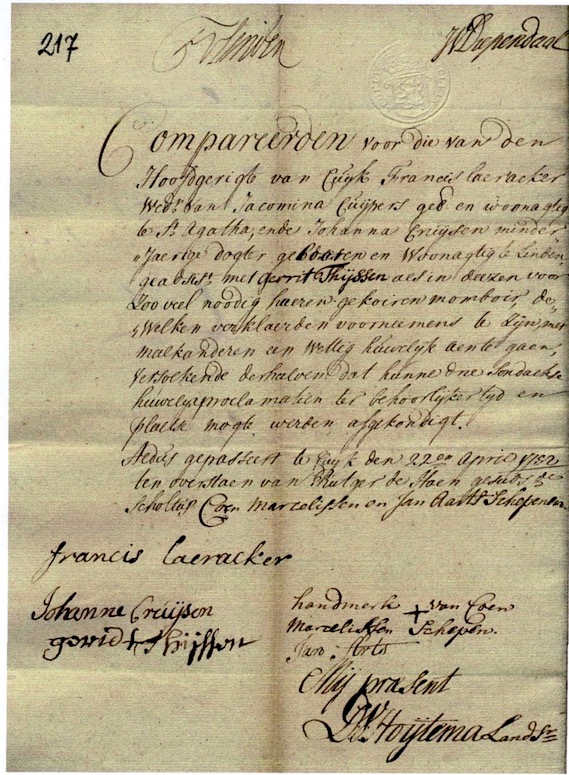 217
Compareerden voor die van den
Hoofdgerigte van Cuyk Francis Laeracker
Wedr. van Jacomina Cuijpers geb. en woonagtig
te St. Agatha, ende Johanna Cruijsen minder
Jaerige dogter gebooren en Woonagtig te Linden
geadsist. met gerrit Thijssen als in deezen voor
Zoo veel noodig haeren gekooren momboir de
Welken verklaerden voorneemens te zijn, met
malkanderen een Wettig huwelijk aen te gaen,
Versoekende derhalven dat hunne drie Sondaehse
huwelijxproclamatien ter behoorlijker tijd en
plaetse mogte werden afgekondigt.
Aldus gepasseert te Cuijk den 22en April 1782
ten overstaen van Rutger de Haen gesubst.
Scholtis Coen Marcelissen en Jan Aarts Schepenen
francis Laeracker
Johanne Cruijsen
gerid + Thijsson
handmerk + van Coen
Marcelissen Schepen.
Jan Arts
Mij present
Hoijtema Landsr.